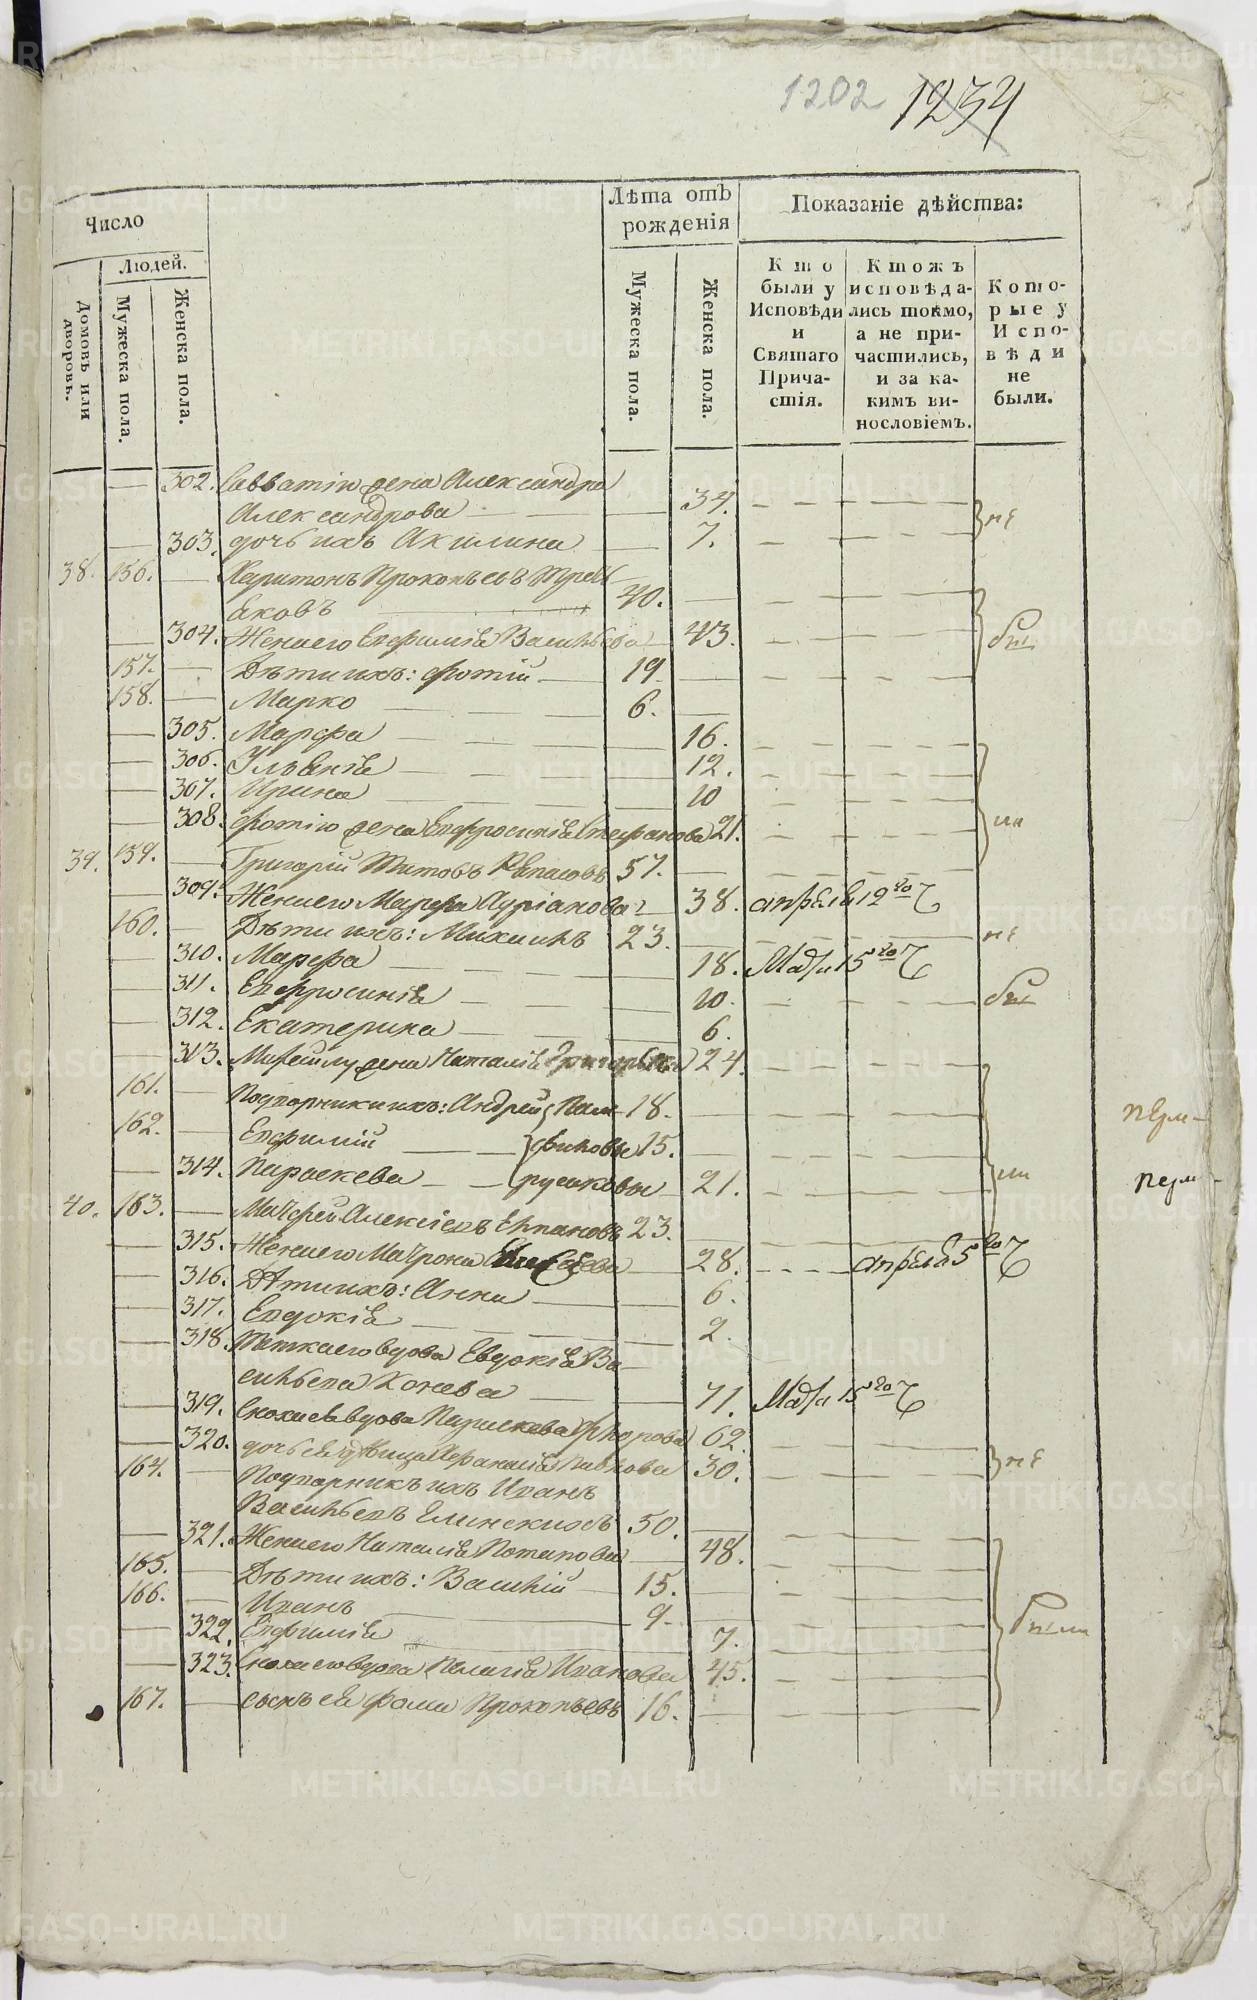 1202 1234
Число
Лѣта отъ рожденія
Показаніе дѣйства:
Людей.
Домовъ или дворовъ.
Мужеска пола.
Женска пола.
Мужеска пола.
Женска пола.
Кто были у Исповѣди и Святаго Прича-стія.
Ктожъ исповѣда-лись токмо, а не при-частились, и за ка-кимъ ви-нословіемъ.
Кото-рые у Испо-вѣди не были.
302. Савватію жена Александра
Александрова 34.
303. дочь ихъ Акилина 7. не
38. 156. Харитонъ Прокопьевъ Треть-
яковъ 40.
304. Жена его Евфимія Васильева 43. бы
157. Дѣти ихъ: Фотій 19
158. Марко 6.
305. Марфа 16.
306. Ульянія 12.
307. Ирина 10
308. Фотію жена Евфросинія Стефанова 21. ли
39. 159. Григорій Титовъ 57.
309. Жена его Марфа Адріанова 38. апрѣля 12го Ч
160. Дѣти ихъ: Михаилъ 23. не
310. Марфа 18. Марта 15го Ч
311. Евфросинія 10. бы
312. Екатерина 6.
313. Михайлу жена Наталія Григорьева 24.
161. Подворники ихъ: Андрей 18.
162. Евфимій 15.
314. Параскева 21. ли
перм-
перм-
40. 163. Матфей Алексѣевъ 23.
315. Жена его Матрона 28. апрѣля 5го Ч
316. Дѣти ихъ: Анна 6.
317. Евдокія 2.
318. Тетка его вдова Евдокія Ва-
сильева Конева 71. Марта 15го Ч
319. Сноха ея вдова Параскева Федорова 62.
320. дочь ея дѣвица Афанасія Павлова 30. не
164. Подворникъ ихъ Иванъ
Васильевъ Елинскихъ 50.
321. Жена его Наталія Потапова 48.
165. Дѣти ихъ: Василій 15.
166. Иванъ 9.
322. Евфимія 7. были
323. Сноха его вдова Пелагія Иванова 45.
167. сынъ ея Фома Прокопьевъ 16.